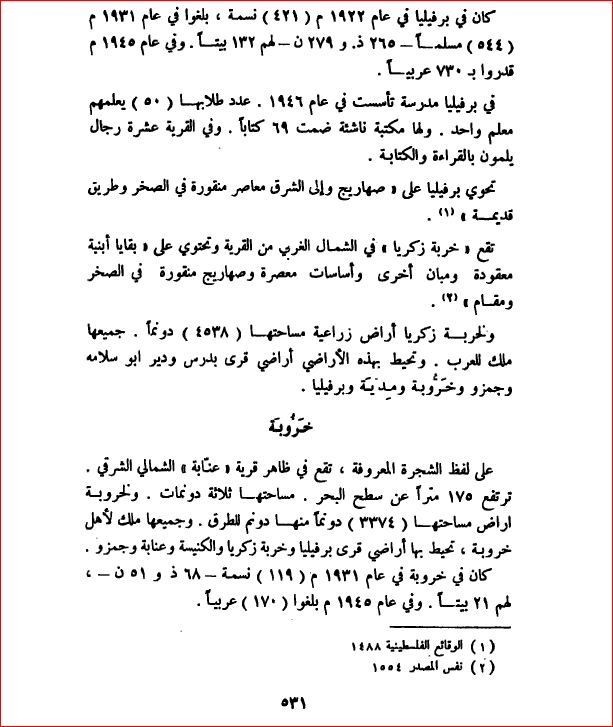 كان في برفيليا في عام ١٩٢٢ م ( ٤٢١ ) نسمة ، بلغوا في عام ١٩٣١ م
( ٥٤٤ ) مسلماً – ٢٦٥ ذ. و ٢٧٩ ن – لهم ١٣٢ بيتاً . وفي عام ١٩٤٥ م
قدروا بـ ٧٣٠ عربياً .
في برفيليا مدرسة تأسست في عام ١٩٤٦ . عدد طلابها ( ٥٠ ) يعلمهم
معلم واحد . ولها مكتبة ناشئة ضمت ٦٩ كتاباً . وفي القرية عشرة رجال
يلمون بالقراءة والكتابة .
تحوي برفيليا على « صهاريج وإلى الشرق معاصر منقورة في الصخر وطريق
قديمة » (١) .
تقع « خربة زكريا » في الشمال الغربي من القرية وتحتوي على « بقايا أبنية
معقودة ومبان أخرى وأساسات معصرة وصهاريج منقورة في الصخر
ومقام » (٢) .
ولخربة زكريا أراض زراعية مساحتها ( ٤٥٣٨ ) دونماً . جميعها
ملك للعرب . وتحيط بهذه الأراضي أراضي قرى بدرس ودير ابو سلامه
وجمزو وخَرُّوبة ومِدْيَة وبرفيليا .
خَرُّوبَة
على لفظ الشجرة المعروفة ، تقع في ظاهر قرية « عنّابة » الشمالي الشرقي .
ترتفع ١٧٥ متراً عن سطح البحر . مساحتها ثلاثة دونمات . ولخروبة
اراض مساحتها ( ٣٣٧٤ ) دونماً منها دونم للطرق . وجميعها ملك لأهل
خروبة ، تحيط بها أراضي قرى برفيليا وخربة زكريا والكنيسة وعنابة وجمزو .
كان في خروبة في عام ١٩٣١ م ( ١١٩ ) نسمة – ٦٨ ذ و ٥١ ن – ،
لهم ٢١ بيتاً . وفي عام ١٩٤٥ م بلغوا ( ١٧٠ ) عربياً .
( ١ ) الوقائع الفلسطينية ١٤٨٨
( ٢ ) نفس المصدر ١٥٥٤
٥٣١